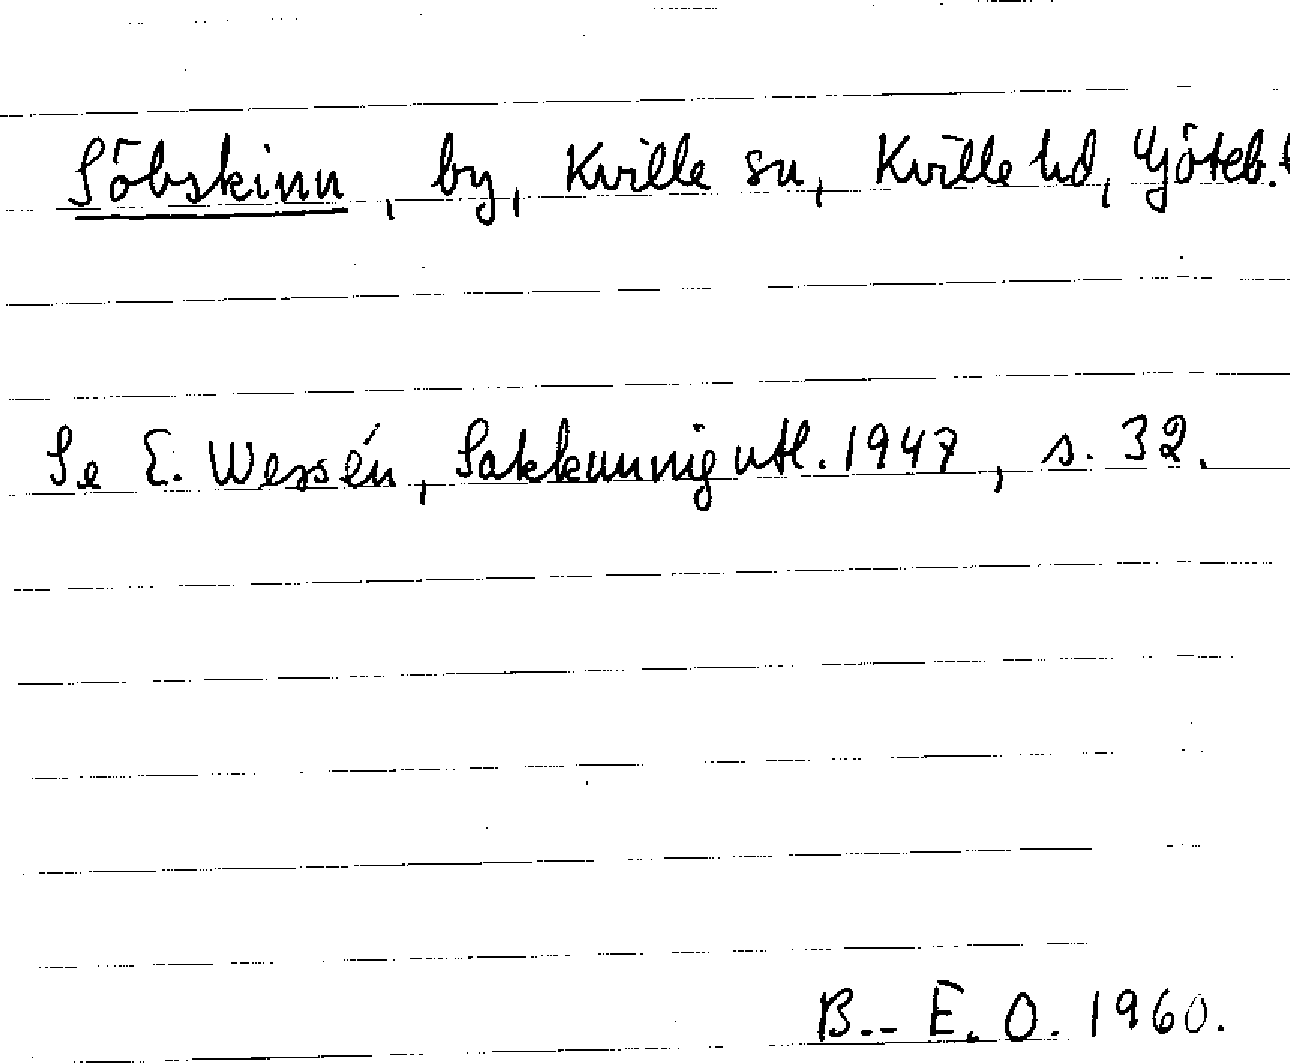 Söbskinn, by, Kville sn, Kville hd, Göteb.
Se E. Wessén, Sakkunnigutl. 1947, s. 32.
B.-E. O. 1960.